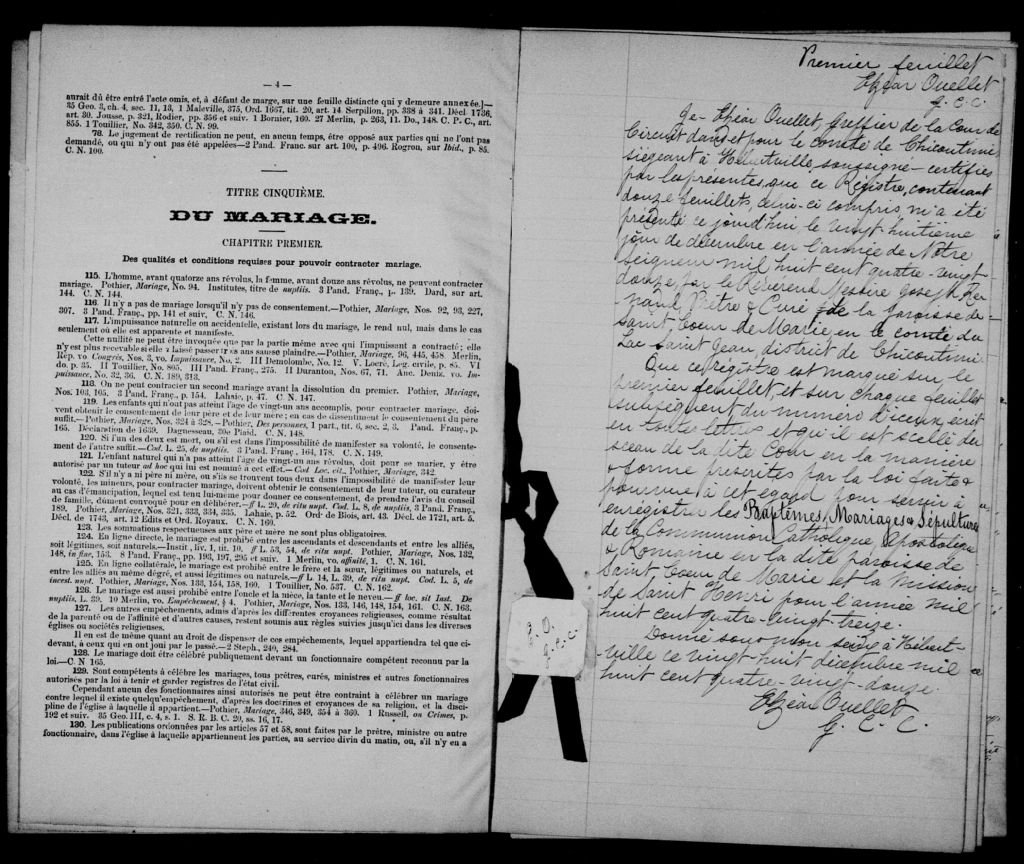 — 4 —
aurait dû être entré l'acte omis, et, à défant de marge, sur une feuille distincte qui y demeure annexée.]—
35 Geo. 3, ch. 4, sec. 11, 13, 1 Maleville, 375, Ord. 1667, tit. 20, art. 14 Serpillon, pp. 338 à 341. Décl. 1736,
art. 30. Jousse, p. 321, Rodier, pp. 356 et suiv. 1 Bornier, 160. 27 Merlin, p. 263, 11. Do., 148. C. P. C., art.
855. 1 Touillier, No. 342, 350. C. N. 99.
78. Le jugement de rectification ne peut, en aucun temps, être opposé aux parties qui ne l'ont pas
demandé, ou qui n'y ont pas été appelées—2 Pand. Franc. sur art. 100, p. 496. Rogrou, sur Ibid., p. 85.
C. N. 100.
TITRE CINQUIÈME.
DU MARIAGE.
CHAPITRE PREMIER.
Des qualités et conditions requises pour pouvoir contracter mariage.
115. L'homme, avant quatorze ans révolus, la femme, avant douze ans révolus, ne peuvent contracter
mariage. Pothier, Mariage, No. 94. Institutes, titre de nuptiis. 3 Pand. Franç., p. 139. Dard, sur art.
144. C. N. 144.
116. Il n'y a pas de mariage lorsqu'il n'y pas de consentement.—Pothier, Mariage, Nos. 92, 93, 227,
307. 3 Pand. Franç., pp. 141 et suiv. C. N. 146.
117. L'impuissance naturelle ou accidentelle, existant lors du mariage, le rend nul, mais dans le cas
seulement où elle est apparente et manifeste.
Cette nullité ne peut être invoquée que par la partie même avec qui l'impuissant a contracté; elle
n'y est plus recevable si elle a laissé passer trois ans sans se plaindre.—Pothier, Mariage, 96, 445, 458. Merlin,
Rép. vo. Congrès, Nos. 3, vo. Impuissance, No. 2. III Demolombe, No. 12. V. Locré, Leg. civile, p. 85. VI
do. p. 35. II Touillier, No. 805. III Pand. Franç., 275. II Duranton, Nos. 67, 71. Anc. Deniz. vo. Im-
puissance, No. 32, 36. C. N. 180, 313.
118. On ne peut contracter un second mariage avant la dissolution du premier. Pothier, Mariage,
Nos. 103, 105. 3 Pand. Franç., p. 154. Lahaie, p. 47. C. N. 147.
119. Les enfants qui n'ont pas atteint l'âge de vingt-un ans accomplis, pour contracter mariage, doi-
vent obtenir le consentement de leur père et de leur mère; en cas de dissentiment le consentement du père
suffit.—Pothier, Mariage, Nos. 324 à 328.—Pothier, Des personnes, 1 part., tit. 6, sec. 2, 3. Pand. Franç., p.
165. Déclaration de 1639. Daguesseau, 30e Plaid. C. N. 148.
120. Si l'un des deux est mort, ou s'il est dans l'impossibilité de manifester sa volonté, le consente-
ment de l'autre suffit.—Cod. L. 25, de nuptiis. 3 Pand. Franç., 164, 178. C. N. 149.
121. L'enfant naturel qui n'a pas atteint l'âge de vingt-un ans révolus, doit pour se marier, y être
autorisé par un tuteur ad hoc qui lui est nommé à cet effet.—Cod Loc. cit., Pothier, Mariage, 342.
122. S'il n'y a ni père ni mère, ou s'ils se trouvent tous deux dans l'impossibilité de manifester leur
volonté, les mineurs, pour contracter mariage, doivent obtenir le consentement de leur tuteur, ou curateur
au cas d'émancipation, lequel est tenu lui-même pour donner ce consentement, de prendre l'avis du conseil
de famille, dûment convoqué pour en délibérer.—ff L. 20, de ritu nupt. Cod. L. 8, de nuptiis, 3 Pand. Franç.,
189. Pothier, Mariage, Nos. 321, 333, 334, 335. Lahaie, p. 52. Ord. de Blois, art. 43. Décl. de 1721, art. 5.
Décl. de 1743, art. 12 Edits et Ord. Royaux. C. N. 160.
123. Les sommations respectueuses aux père et mère ne sont plus obligatoires.
124. En ligne directe, le mariage est prohibé entre les ascendants et descendants et entre les alliés,
soit légitimes, soit naturels.—Instit., liv. 1, tit. 10, ff L. 53, 54, de ritu nupt. Pothier, Mariage, Nos. 132,
148, in fine, 153. 8 Pand. Franç., pp. 193, 197, 295 et suiv. 1 Merlin, vo. affinité, 1. C. N. 161.
125. En ligne collatérale, le mariage est prohibé entre le frère et la sœur, légitimes ou naturels, et
entre les alliés au même dégré, et aussi légitimes ou naturels.—ff L. 14, L. 39, de ritu nupt. Cod. L. 5, de
incest. nupt. Pothier, Mariage, Nos. 133, 154, 158, 160. 1 Touillier, No. 537. C. N. 162.
126. Le mariage est aussi prohibé entre l'oncle et la nièce, la tante et le neveu.—ff loc. sit Inst. De
nuptiis, L. 39. 10 Merlin, vo. Empêchement, § 4. Pothier, Mariage, Nos. 133, 146, 148, 154, 161. C. N. 163.
127. Les autres empêchements, admis d'après les différentes croyances religieuses, comme résultat
de la parenté ou de l'affinité et d'autres causes, restent soumis aux règles suivies jusqu'ici dans les diverses
églises ou sociétés religieuses.
Il en est de même quant au droit de dispenser de ces empêchements, lequel appartiendra tel que ci-
devant, à ceux qui en ont joui par le passé.—2 Steph., 240, 284.
128. Le mariage doit être célébré publiquement devant un fonctionnaire compétent reconnu par la
loi.—C N. 165.
129. Sont compétents à célébre les mariages, tous prêtres, curés, ministres et autres fonctionnaires
autorisés par la loi à tenir et garder registres de l'état civil.
Cependant aucun des fonctionnaires ainsi autorisés ne peut être contraint à célébrer un mariage
contre lequel il existe quelqu'empêchement, d'après les doctrines et croyances de sa religion, et la disci-
pline de l'église à laquelle il appartient.—Pothier, Mariage, 346, 349, 354 à 360. 1 Russell, on Crimes, p.
192 et suiv. 35 Geo. III, c. 4, s. 1. S. R. B. C. 20, ss. 16, 17.
130. Les publications ordonnées par les articles 57 et 58, sont faites par le prêtre, ministre ou autre
fonctionnaire, dans l'église à laquelle appartiennent les parties, au service divin du matin, ou, s'il n'y en a
E. O.
G. C. C.
Premier feuillet
Elzéar Ouellet
G. C. C.
Je Elzéar Ouellet, Greffier de la Cour de
Circuit dans et pour le comté de Chicoutimi
siégeant à Hébertville, soussigné certifies
par les présentes, que ce Régistre, contenant
douze feuillets, celui-ci compris m'a été
présenté ce jourd'hui le vingt huitième
jour de décembre en l'année de Notre
seigneur mil huit cent quatre-vingt-
douze par le Révérend Messire Joseph Re-
naud, Prêtre & Curé de la paroisse de
Saint, Coeur de Marie en le comté du
Lac Saint Jean, district de Chicoutimi
Que ce régistre est marqué sur le
premier feuillet, et sur chaque feuillet
subséquent du numéro d'iceux, écrit
en toutes lettres et qu'il est scellé du
sceau de la dite Cour en la manière
& forme prescrites par la loi faite &
pourvue à cet égard pour servir à
enregistrer les Baptêmes, Mariages & Sépultures
de la Communion Catholique Apostolique
& Romaine en la dite paroisse de
Saint, Coeur de Marie et la mission
de Saint Henri pour l'année mil
huit cent quatre-vingt-treize.
Donné sous mon seing à Hébert-
ville ce vingt-huit décembre mil
huit cent quatre-vingt-douze
Elzéar Ouellet
G. C. C.